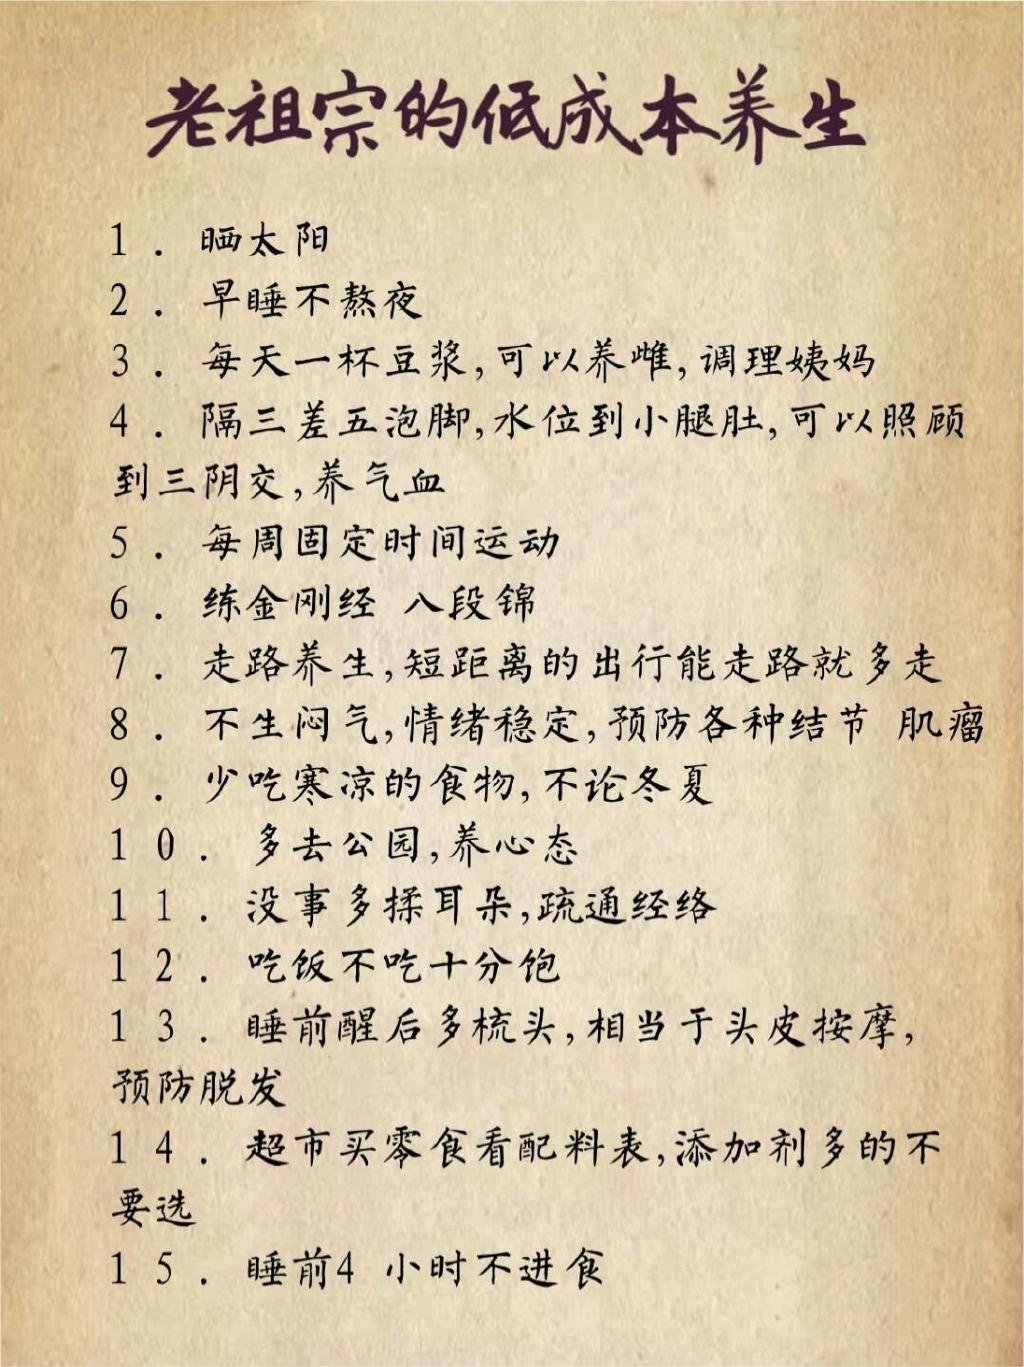 老祖宗的低成本养生
1．晒太阳
2．早睡不熬夜
3．每天一杯豆浆,可以养雌,调理姨妈
4．隔三差五泡脚,水位到小腿肚,可以照顾
到三阴交,养气血
5．每周固定时间运动
6．练金刚经 八段锦
7．走路养生,短距离的出行能走路就多走
8．不生闷气,情绪稳定,预防各种结节 肌瘤
9．少吃寒凉的食物,不论冬夏
10．多去公园,养心态
11．没事多揉耳朵,疏通经络
12．吃饭不吃十分饱
13．睡前醒后多梳头,相当于头皮按摩,
预防脱发
14．超市买零食看配料表,添加剂多的不
要选
15．睡前4 小时不进食